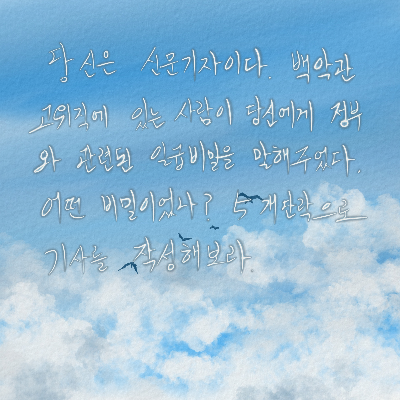 당신은 신문기자이다. 백악관
고위직에 있는 사람이 당신에게 정부
와 관련된 일급비밀을 말해주었다.
어떤 비밀이었나? 5개단락으로
기사를 작성해보라.